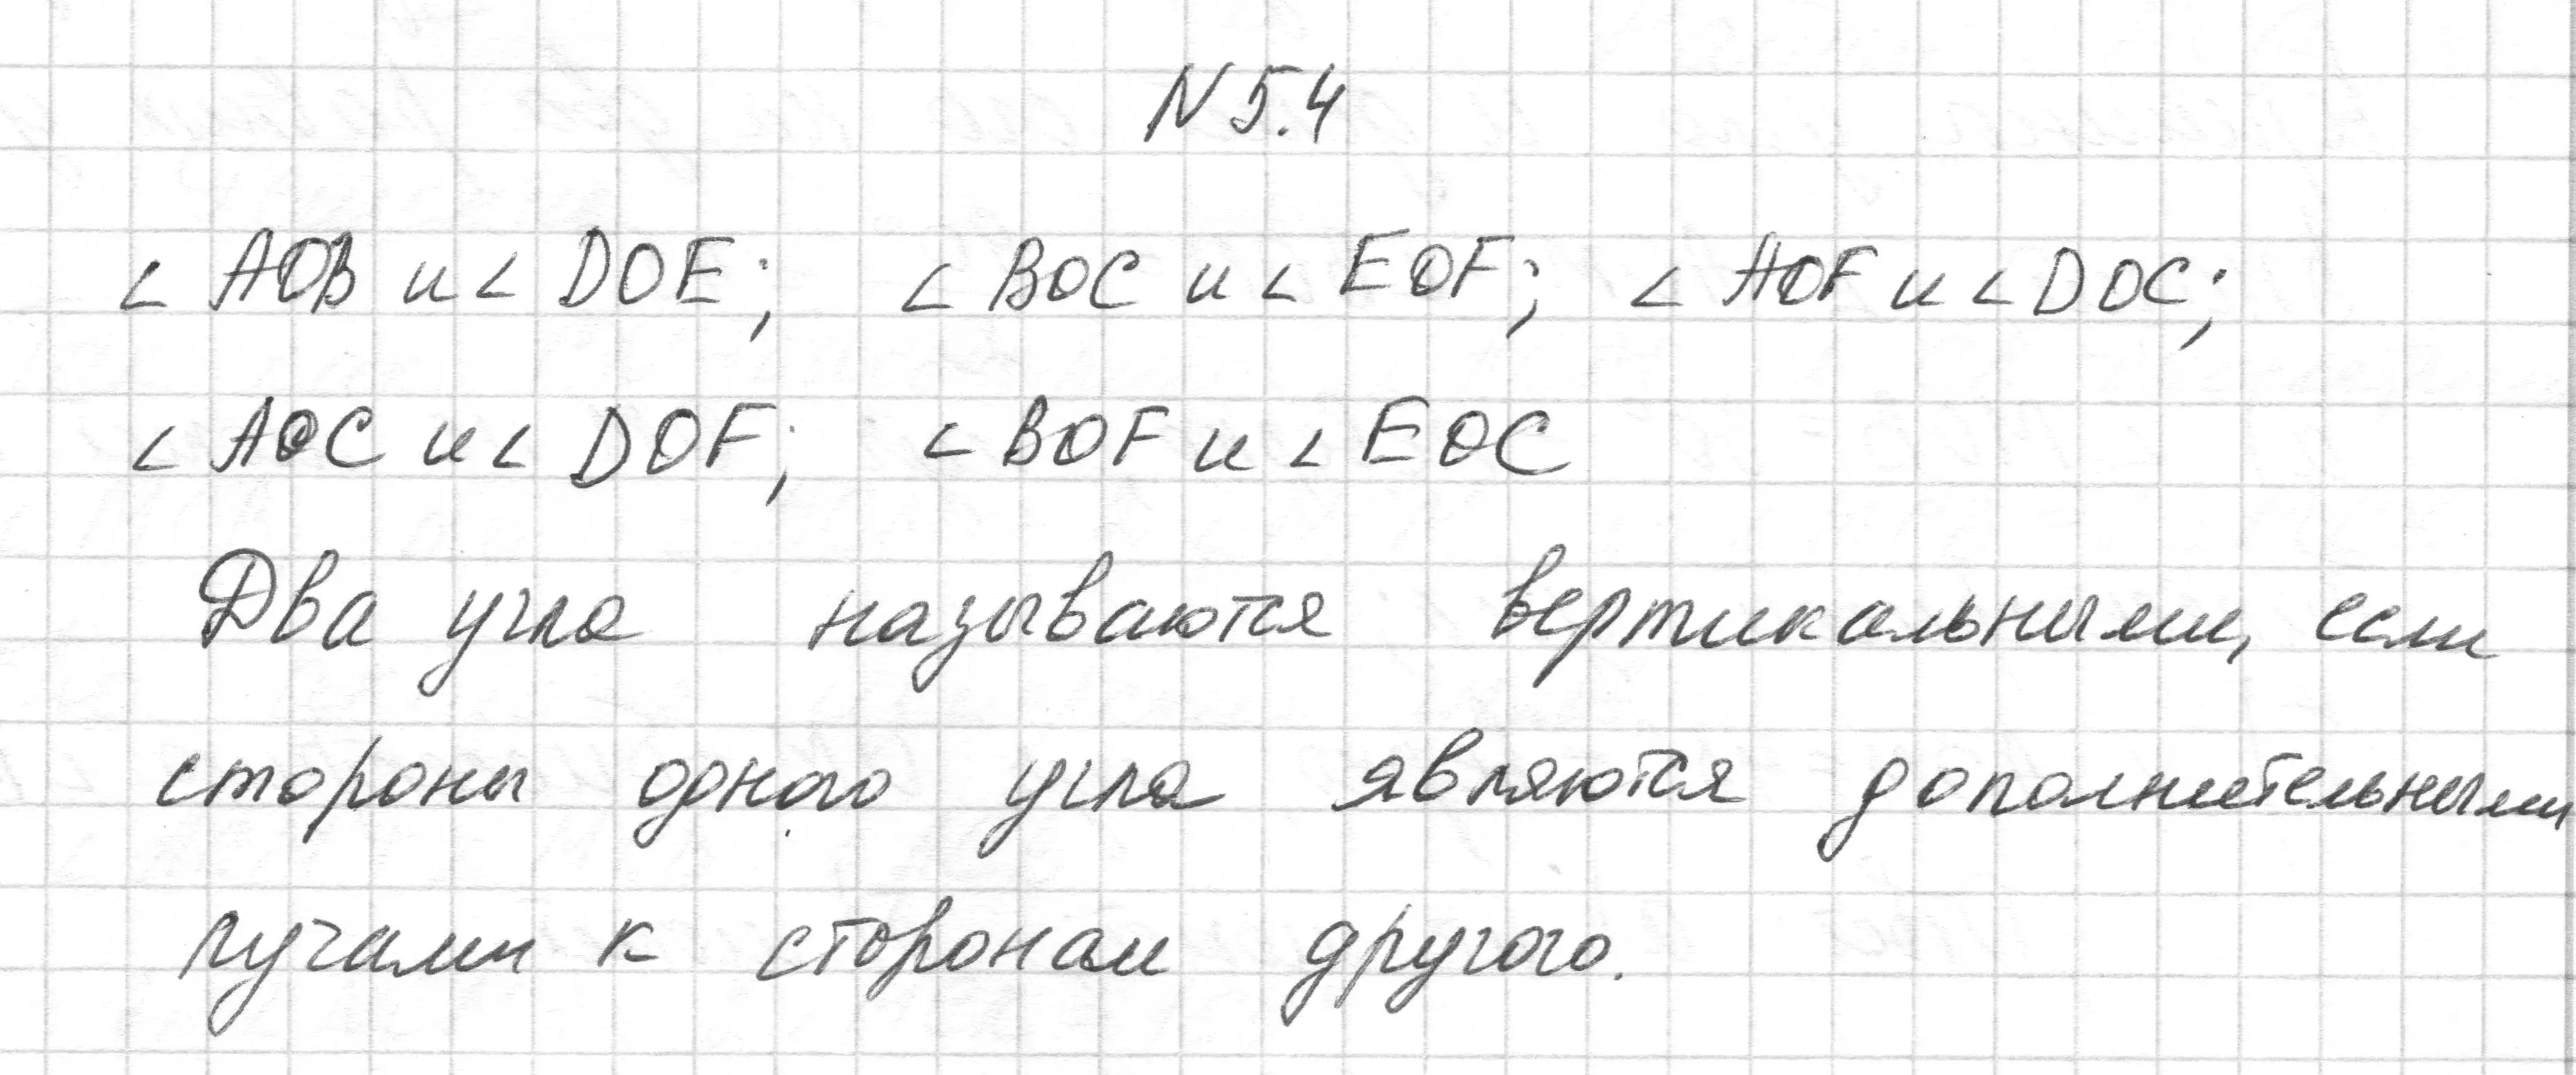 N 5.4
∠ AOB и ∠ DOE; ∠ BOC и ∠ EOF; ∠ AOF и ∠ DOC;
∠ AOC и ∠ DOF; ∠ BOF и ∠ EOC
Два угла называются вертикальными, если
стороны одного угла являются дополнительными
лучами к сторонам другого.